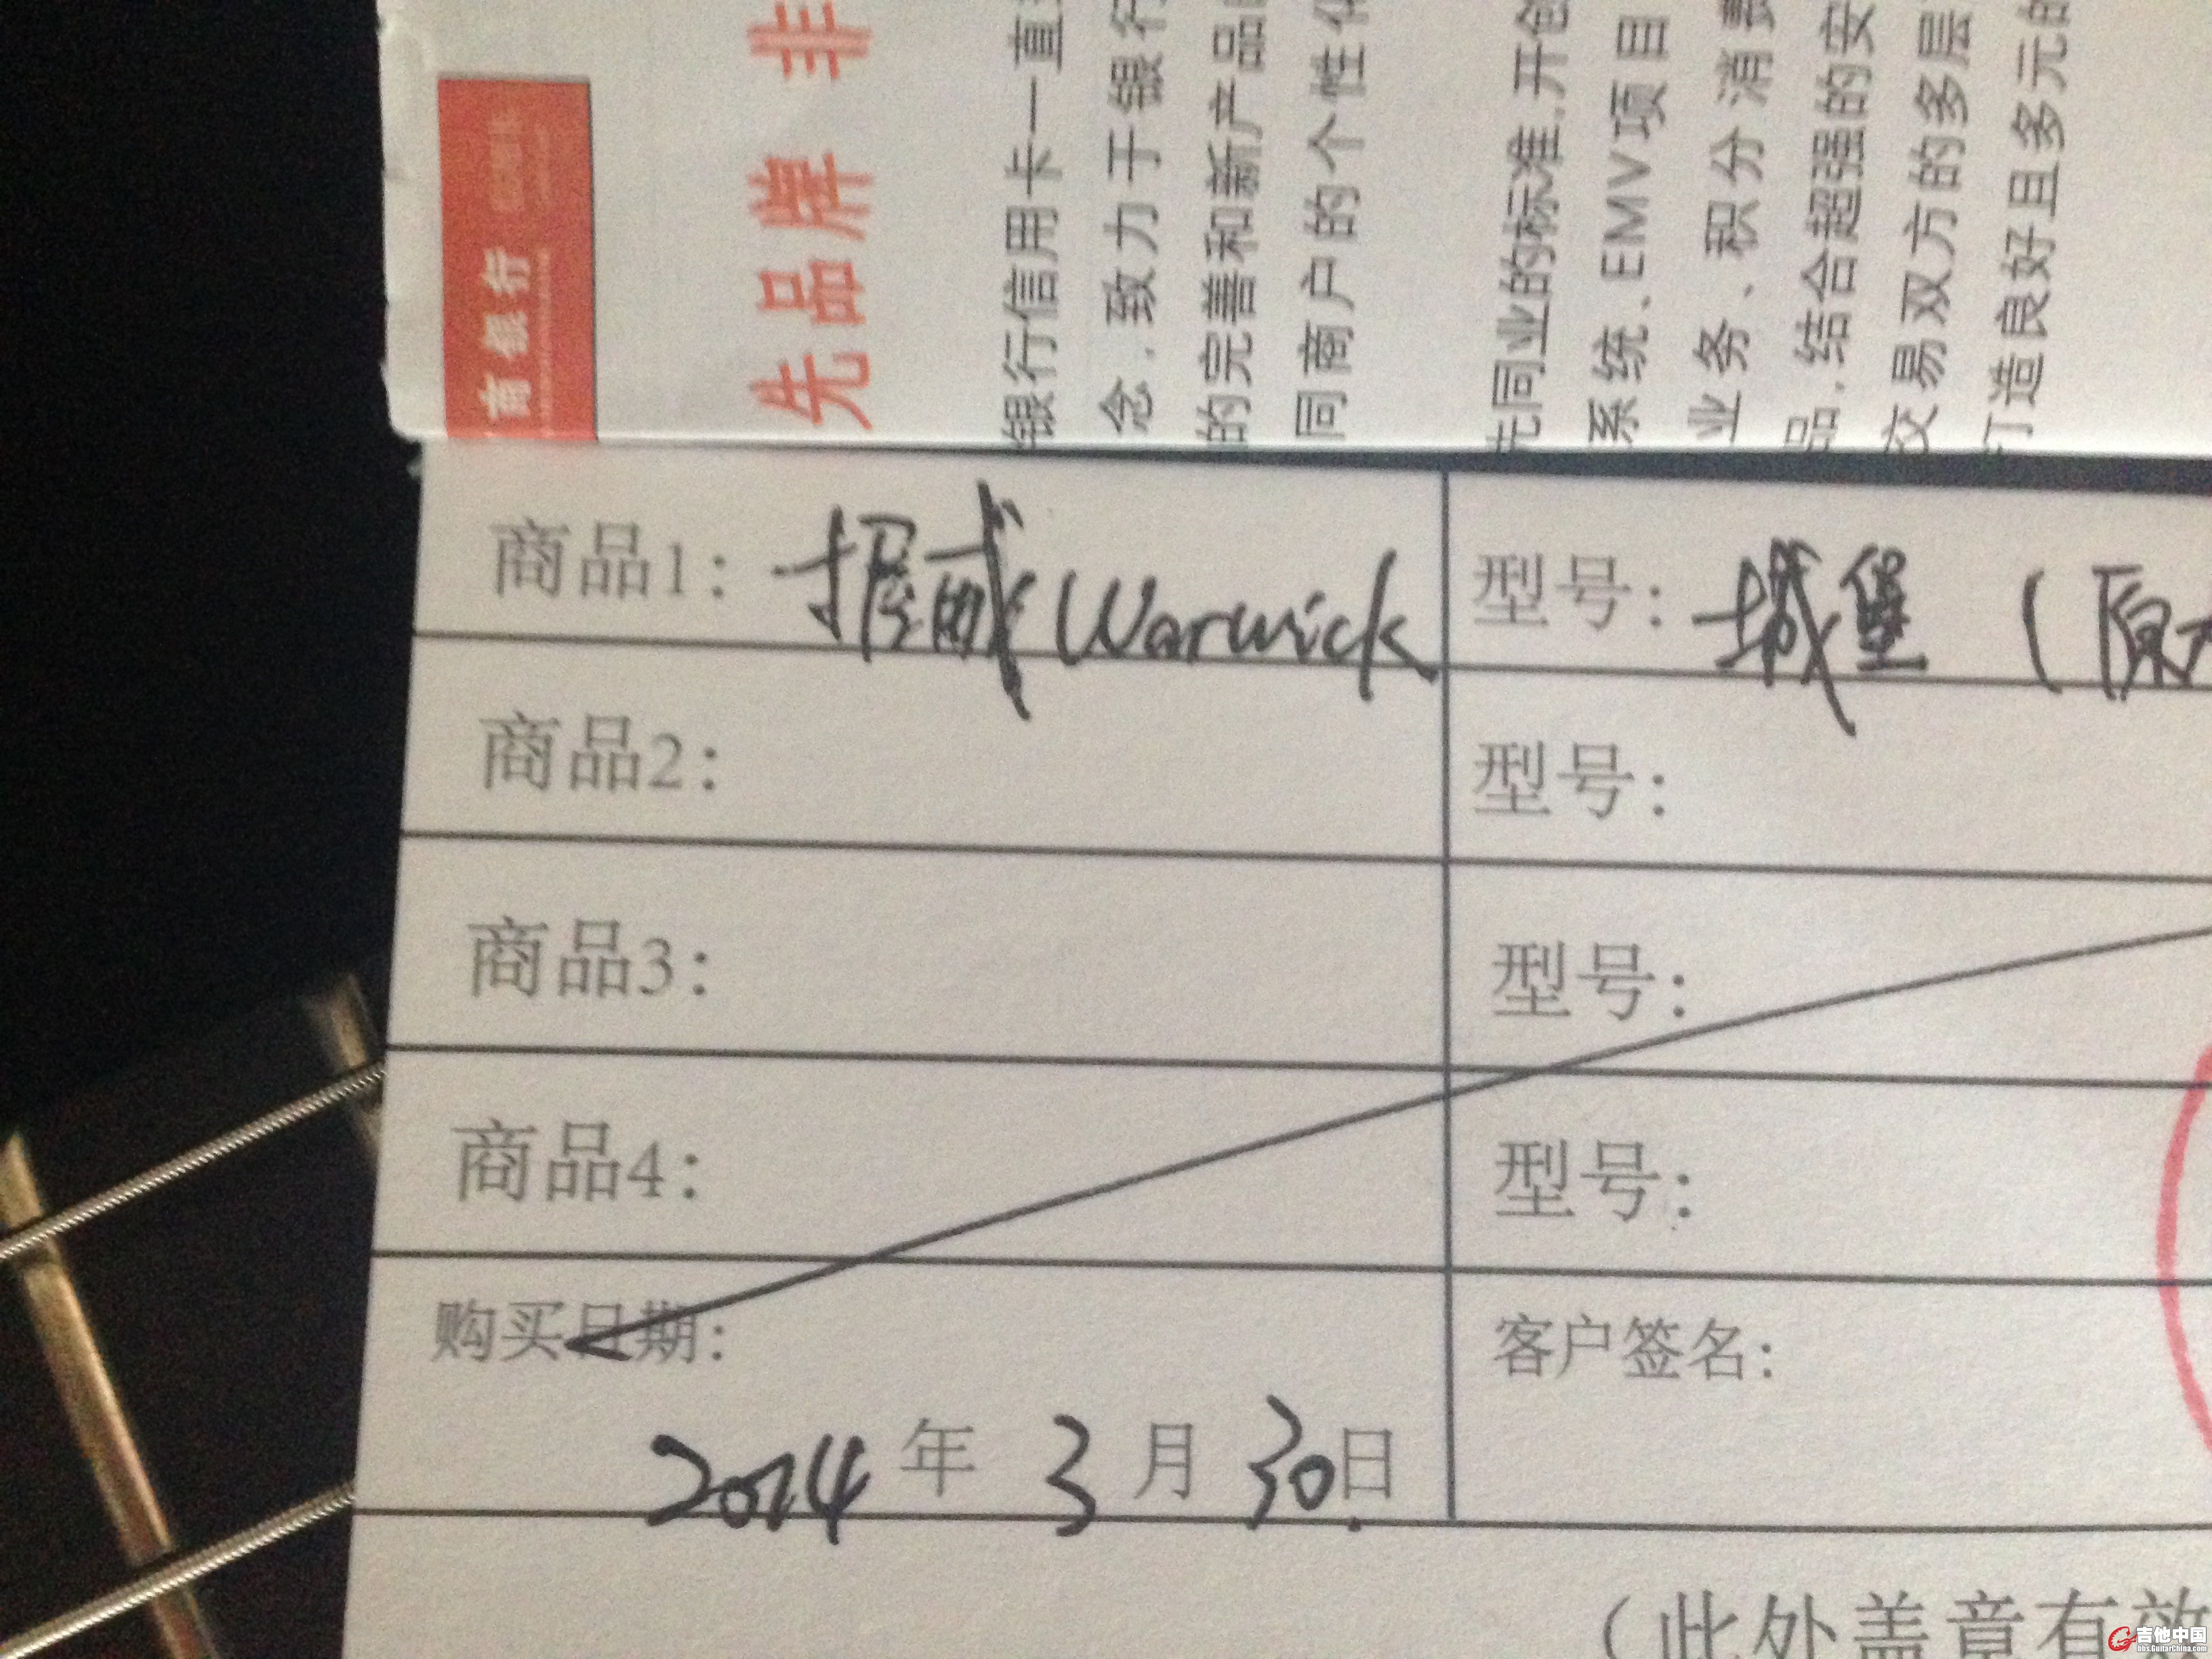 商银行
先品牌 非
银行信用卡一直
念,致力于银行
的完善和新产品
同商户的个性化
先同业的标准,开创
系统、EMV项目
业务、积分消费
品,结合超强的安
交易双方的多层
打造良好且多元的
商品1: 握威Warwick 型号: 城堡 (原木
商品2: 型号:
商品3: 型号:
商品4: 型号:
购买日期: 客户签名:
2014 年 3 月 30日
(此处盖章有效
吉他中国
bbs.GuitarChina.com